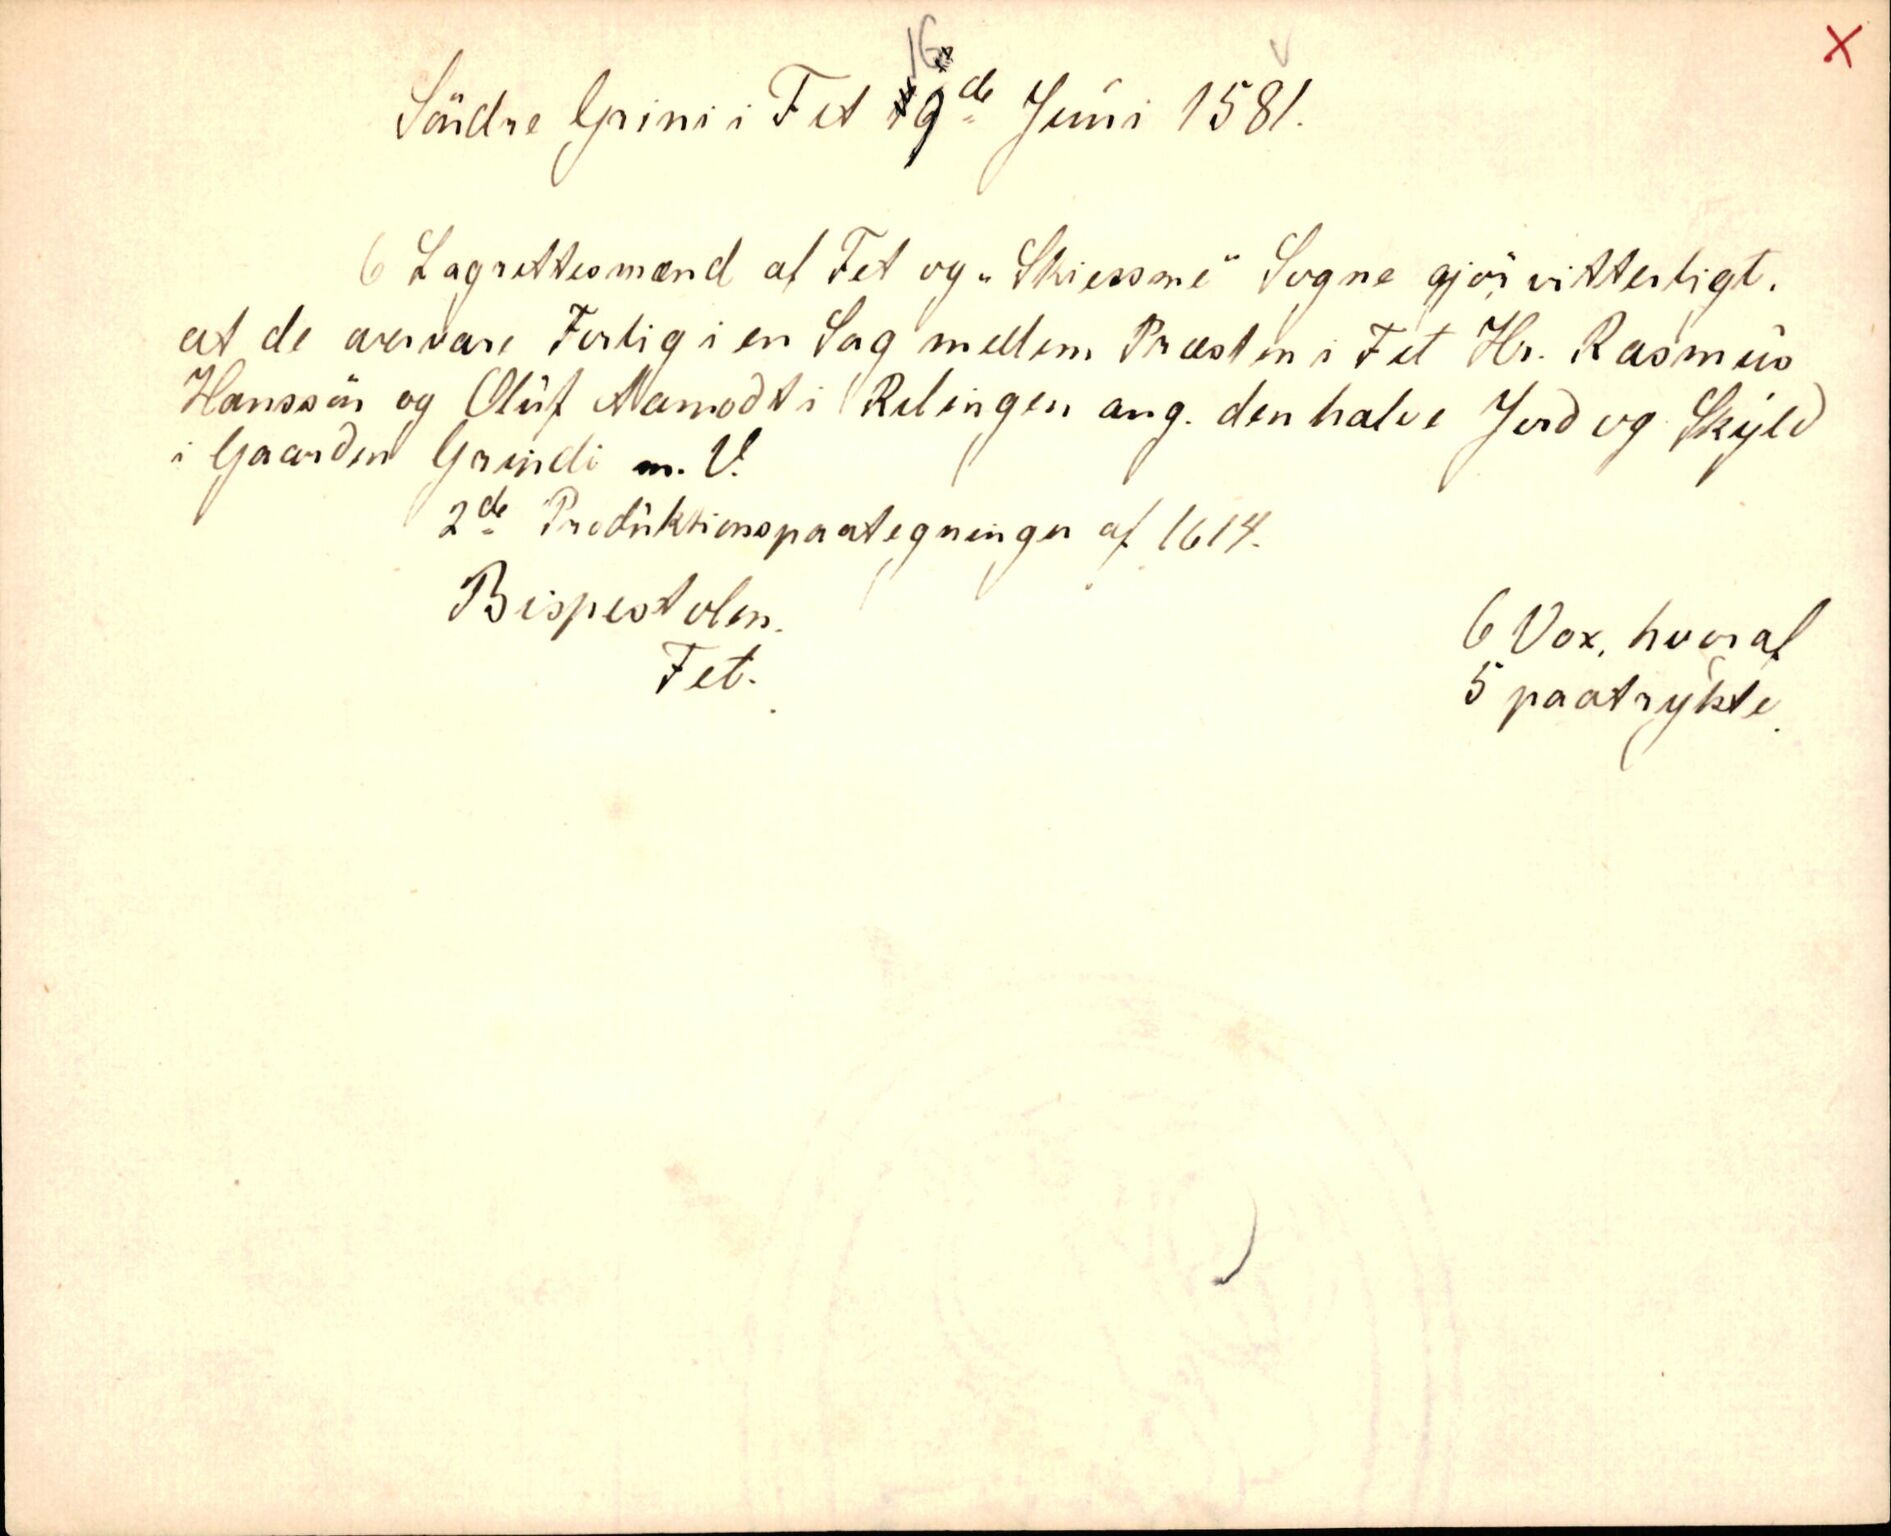 16
Söndre Grini i Fet 9de Juni 1581.
6 Lagrettesmænd af Fet og "Skiessme" Sogne gjör vitterligt,
at de overvare Forlig i en Sag mellem Præsten i Fet Hr. Rasmus
Hanssön og Oluf Aamodt i Relingen ang. den halve Jord og Skyld
i Gaarden Grindi m. V.
2de Produktionspaategninger af 1614.
Bispestolen.
Fet.
6 Vox, hvoraf
5 paatrykte.